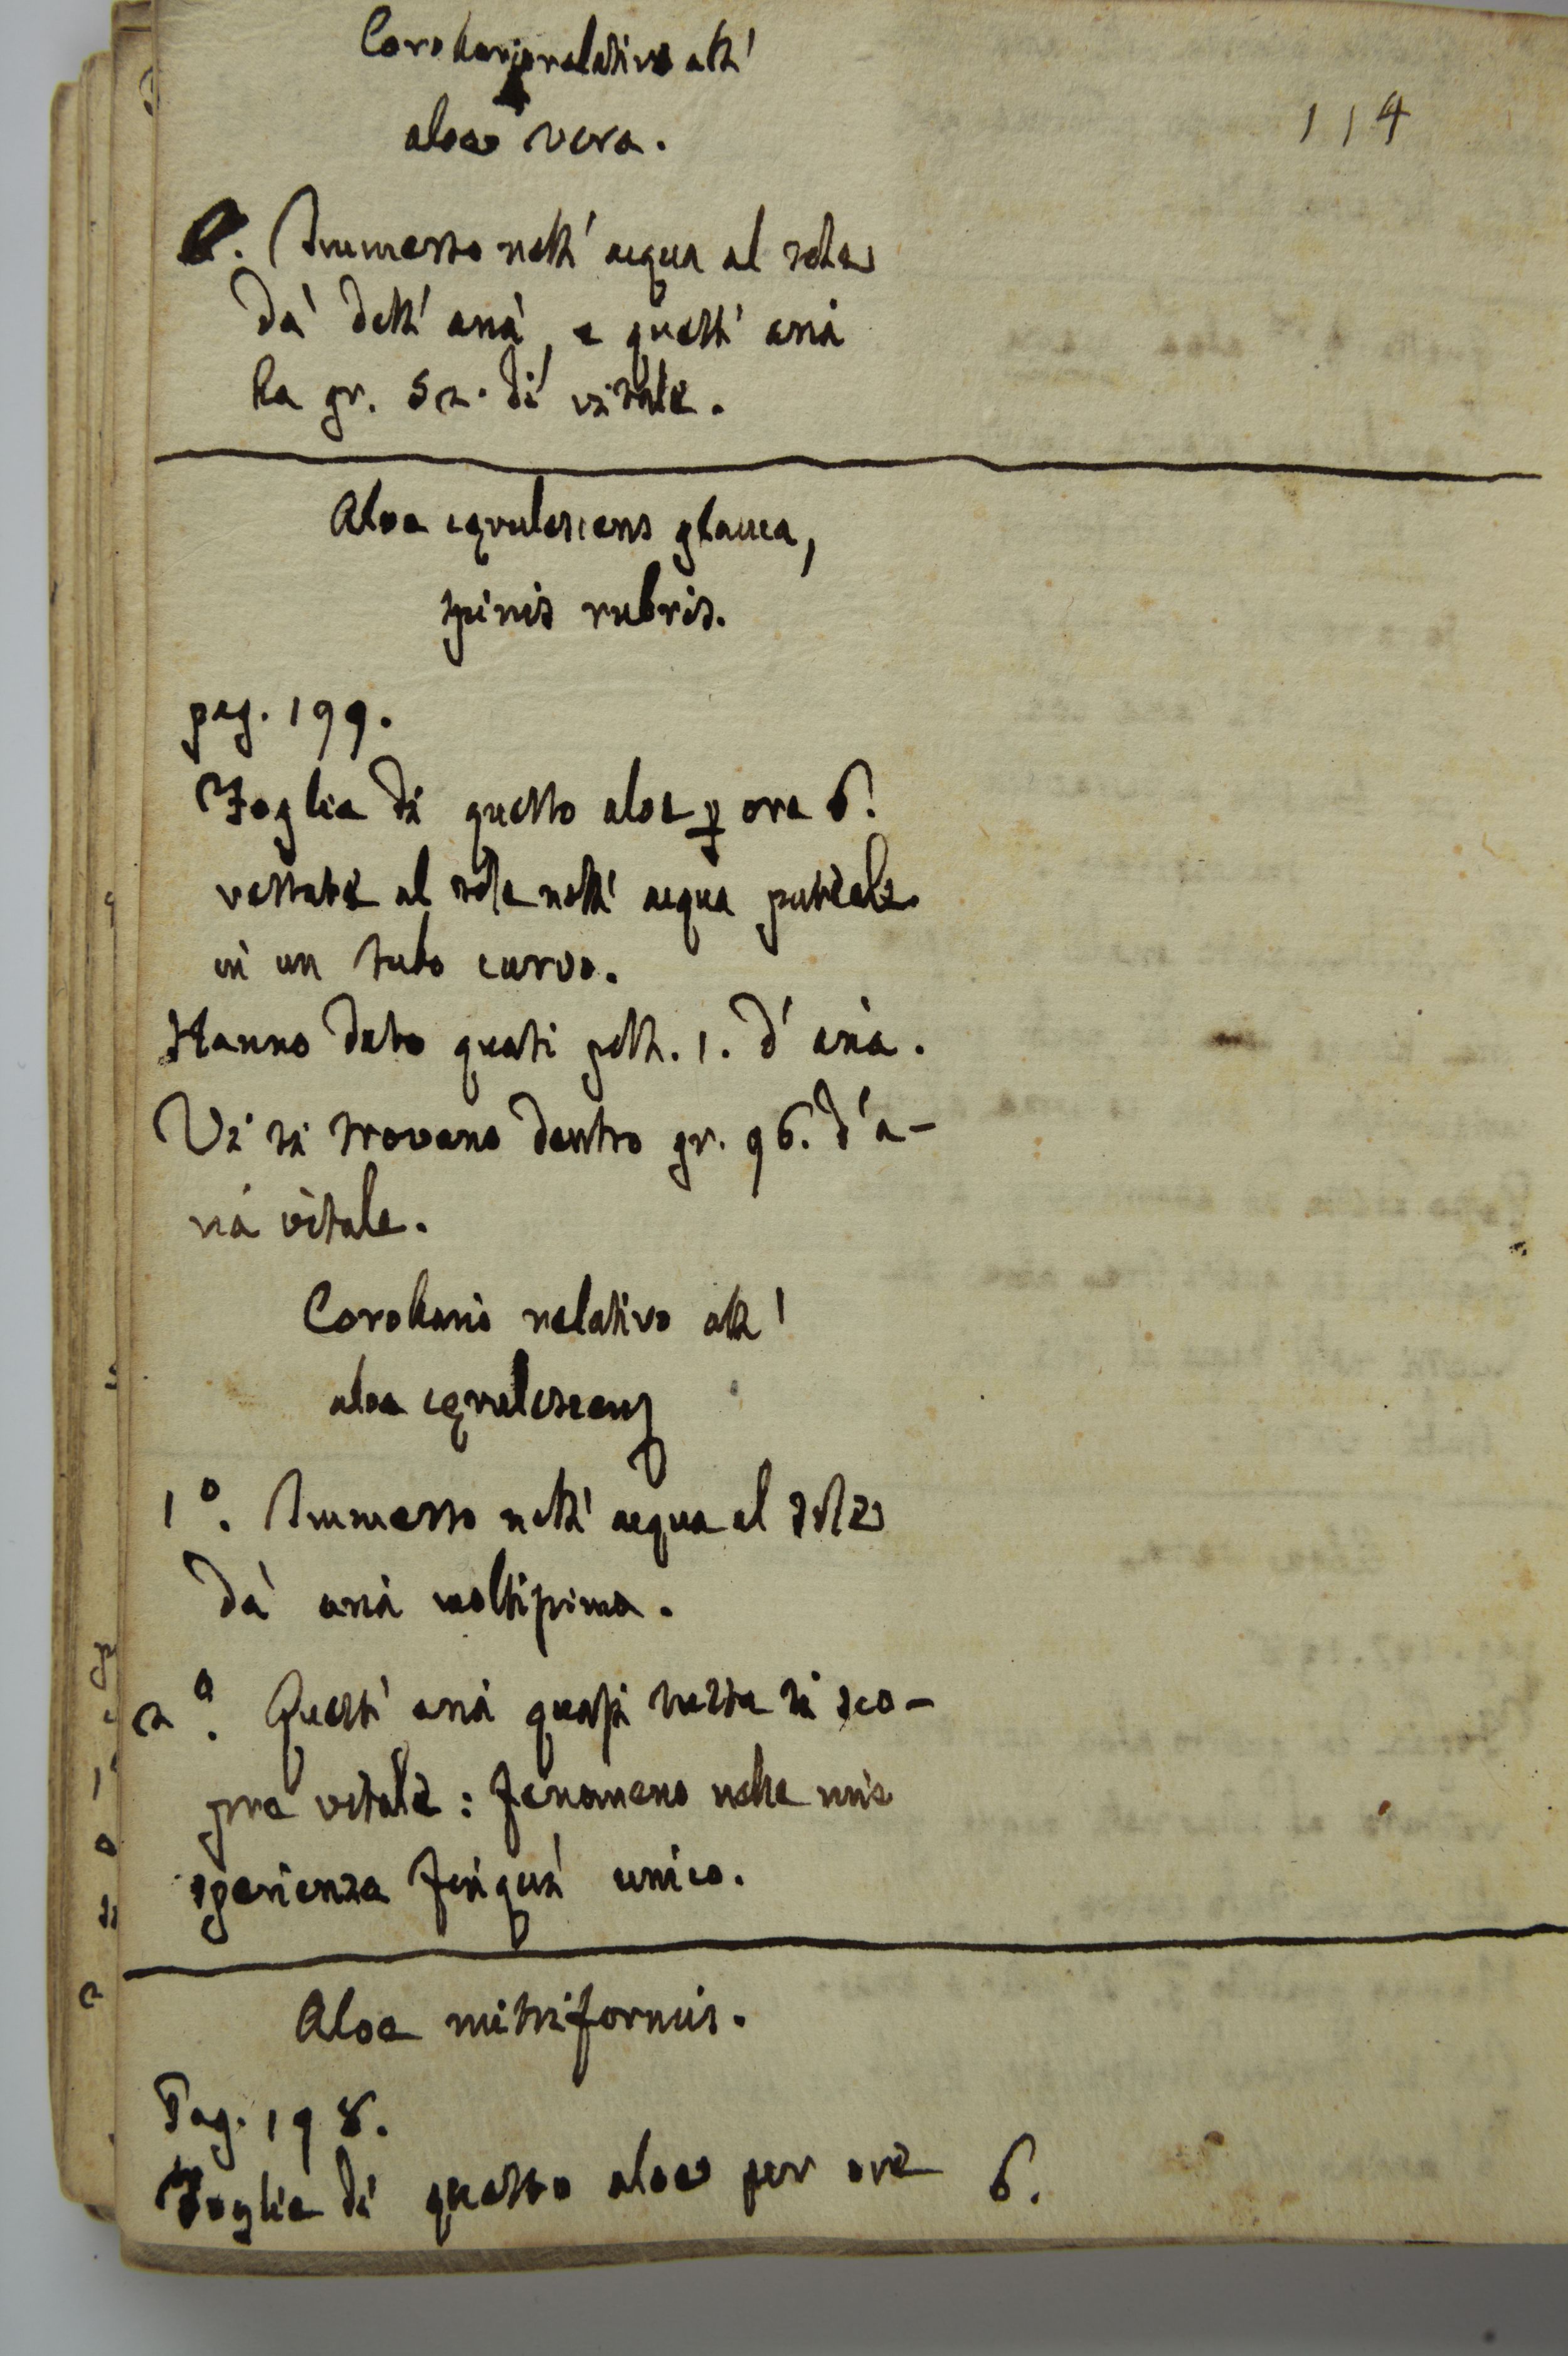 Corollario relativo all'
aloe vera.
114
Immerso nell' acqua al sole
dà dell' aria, e quest' aria
ha gr. 52. di vitale.
Aloe cærulescens glauca,
spinis rubris.
pag. 199.
Foglie di questo aloe p ore 6.
restate al sole nell' acqua puteale
in un tubo curvo.
Hanno dato quasi poll. 1. d' aria.
Vi si trovano dentro gr. 96. d' a-
ria vitale.
Corollario relativo all'
aloe cærulescens
1°. Immerso nell' acqua al sole
dà aria moltissima.
2°. Quest' aria quasi tutta si sco-
pre vitale: fenomeno nelle mie
sperienze finquì unico.
Aloe mitriformis.
Pag. 198.
Foglie di questo aloe per ore 6.